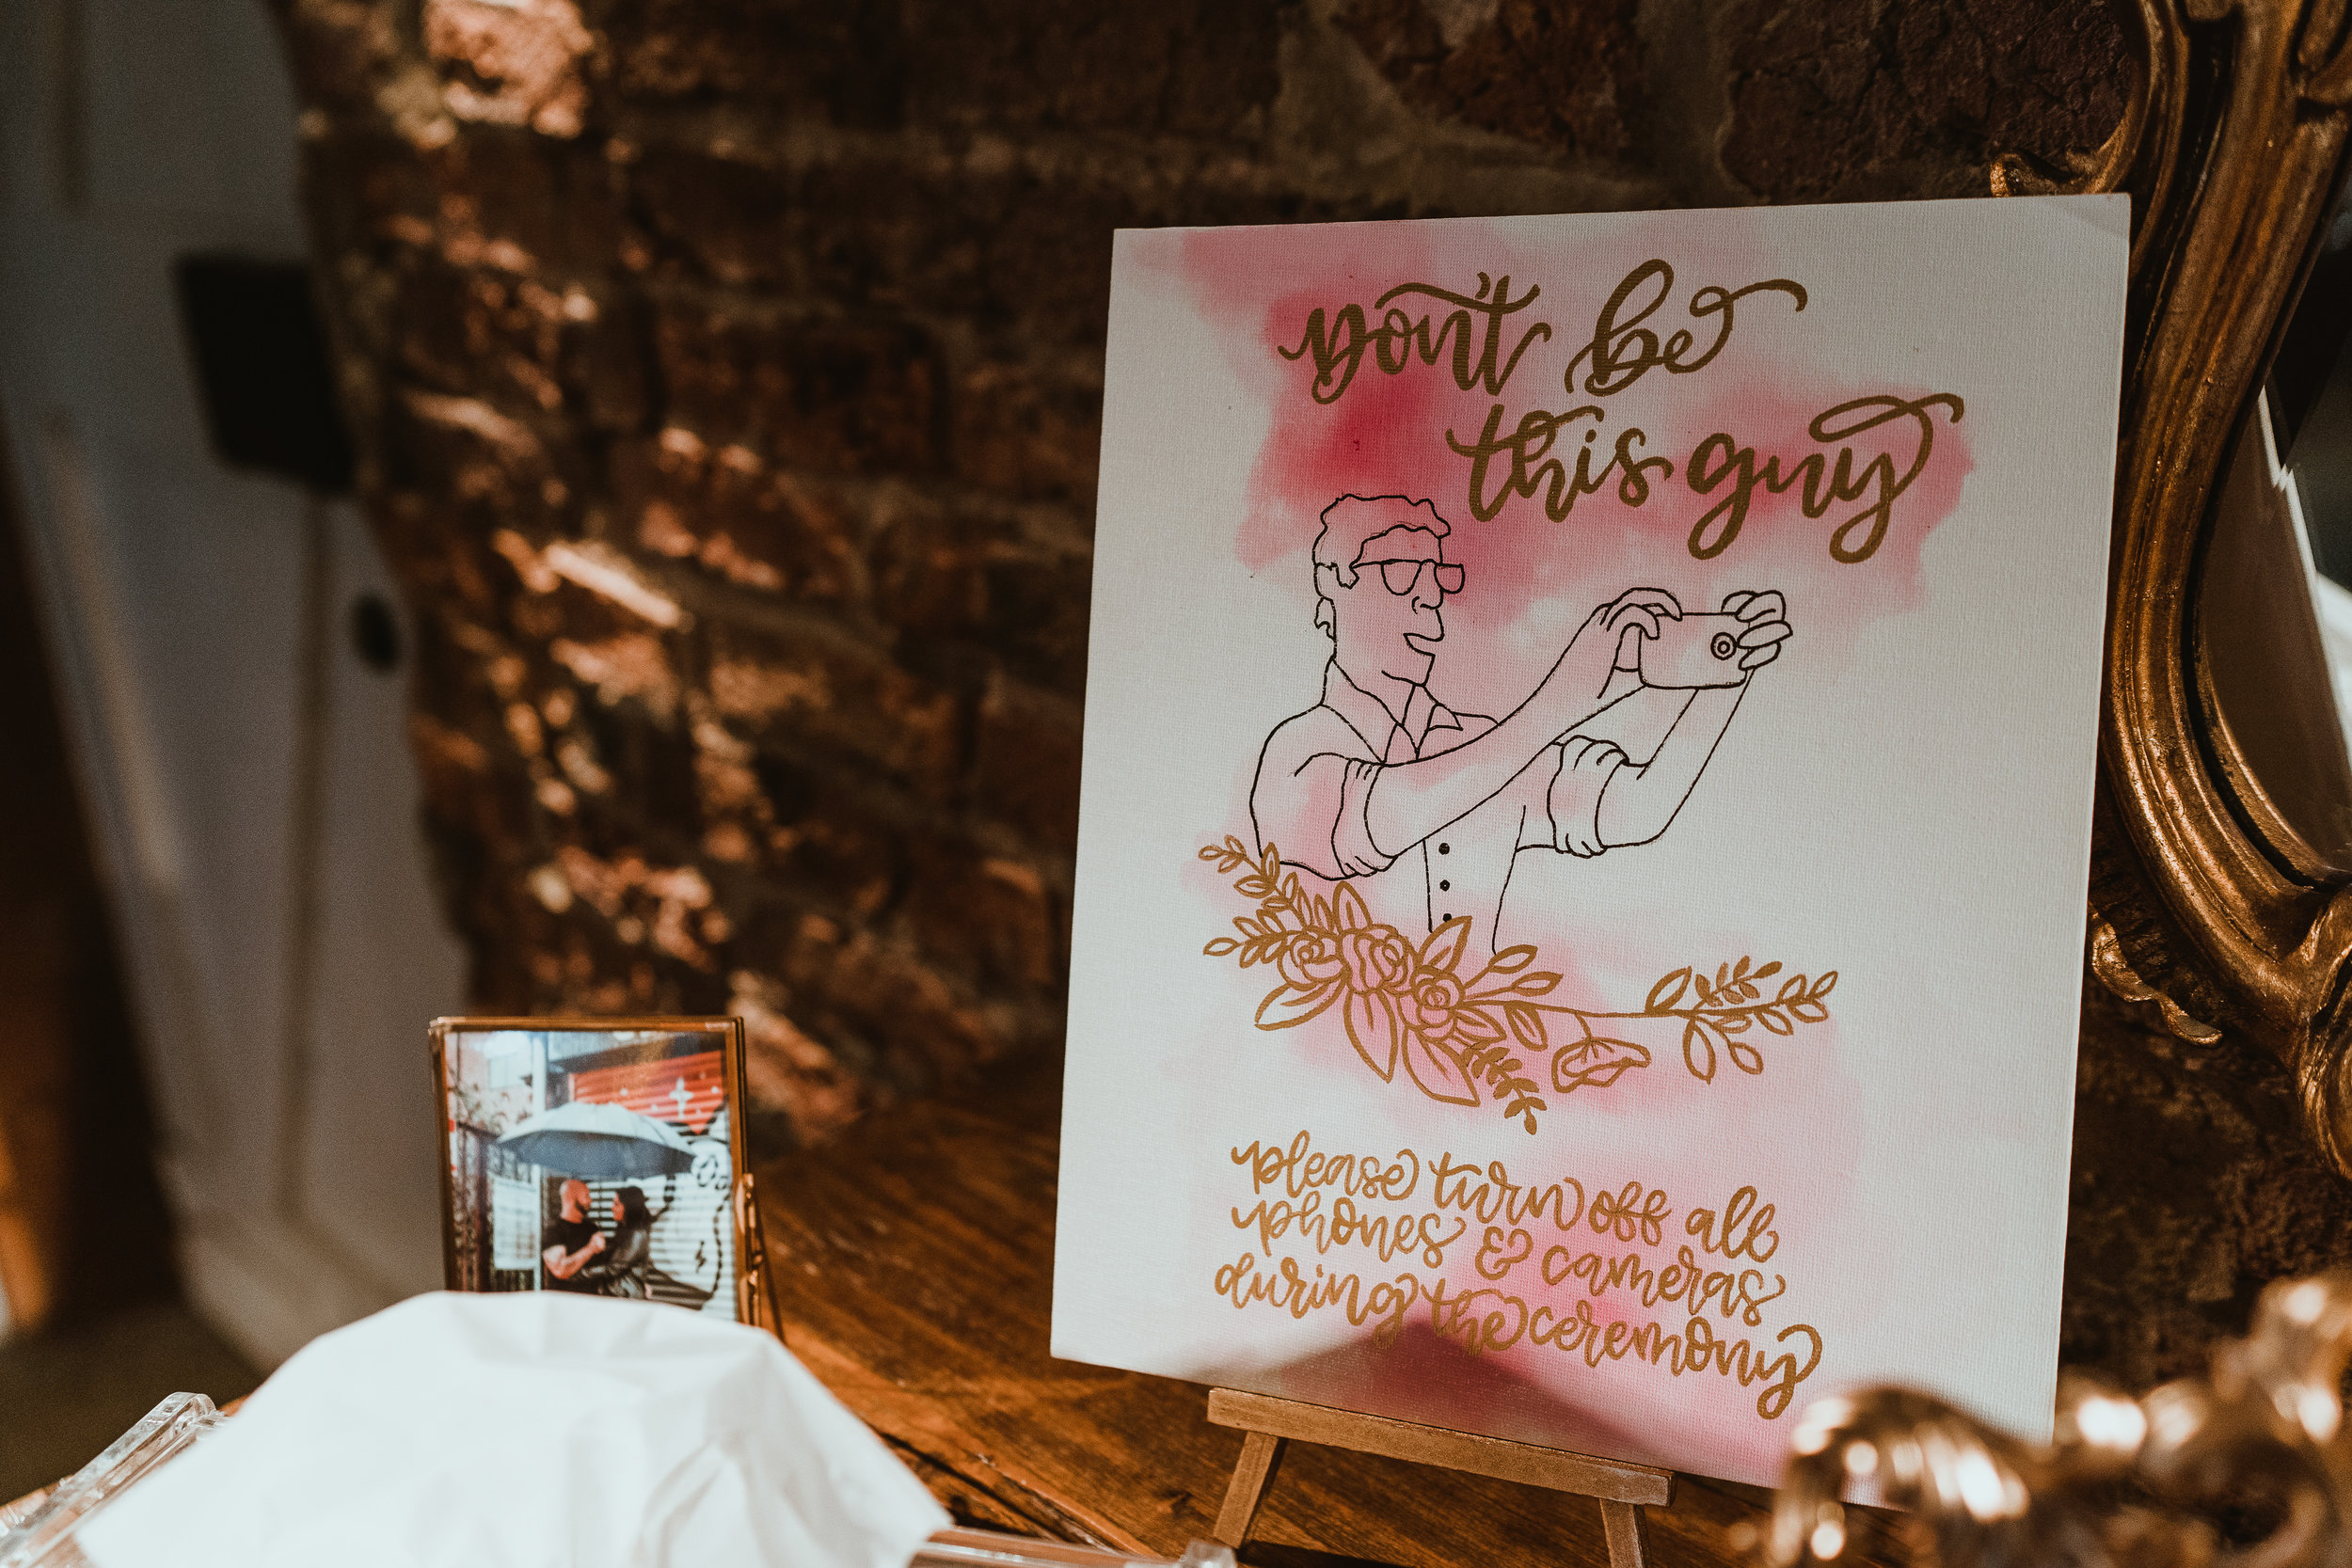 Don't be
this guy
please turn off all
phones & cameras
during the ceremony